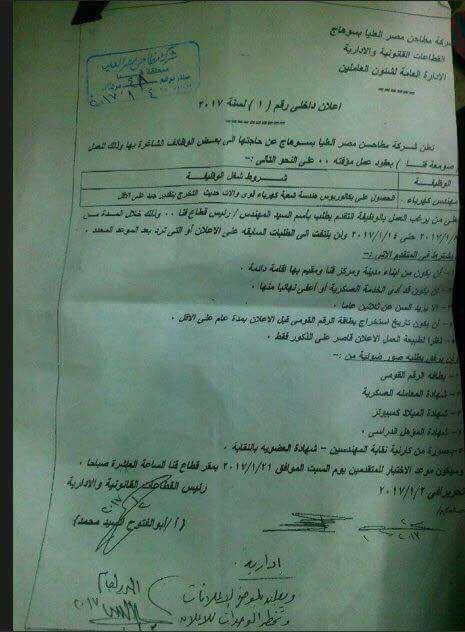 شركة مطاحن مصر العليا بسوهاج
القطاعات القانونية والادارية
الادارة العامة لشئون العاملين
اعلان داخلى رقم ( ١ ) لسنة ٢٠١٧
تعلن شركة مطاحن مصر العليا بسوهاج عن حاجتها الى بعض الوظائف الشاغرة بها وذلك للعمل
صومعة قنا ) بعقود عمل مؤقته ٠٠ على النحو التالى :-
الوظيفة شروط شغل الوظيفة
مهندس كهرباء الحصول على بكالوريوس هندسة شعبة كهرباء قوى والات حديث التخرج بتقدير جيد على الاقل
على من يرغب العمل بالوظيفة التقدم بطلب بأسم السيد المهندس / رئيس قطاع قنا ٠٠ وذلك خلال المدة من
٢٠١٧/١/ حتى ٢٠١٧/١/١٥ ولن يلتفت الى الطلبات السابقه على الاعلان أو التى ترد بعد الموعد المحدد ٠
يشترط فى المتقدم الاتى :-
أن يكون من ابناء مدينة ومركز قنا ومقيم بها اقامة دائمة ٠
أن يكون قد أدى الخدمة العسكرية أو أعفى نهائيا منها ٠
الا يزيد السن عن ثلاثين عاما ٠
أن يكون تاريخ استخراج بطاقة الرقم القومى قبل الاعلان بمدة عام على الاقل ٠
نظرا لطبيعة العمل الاعلان قاصر على الذكور فقط ٠
يرفق بطلبه صور ضوئية من :-
بطاقه الرقم القومى
شهادة المعامله العسكرية
شهادة الميلاد كمبيوتر
شهادة المؤهل الدراسى ٠
صورة من كارنية نقابة المهندسين - شهادة العضويه بالنقابة ٠
وسيكون موعد الاختبار للمتقدمين يوم السبت الموافق ٢٠١٧/١/٢١ بمقر قطاع قنا الساعة العاشرة صباحا ٠
تحريرا فى ٢٠١٧/١/٢
رئيس القطاعات القانونية والادارية
(أ/أبوالفتوح السيد محمد)
ادارية